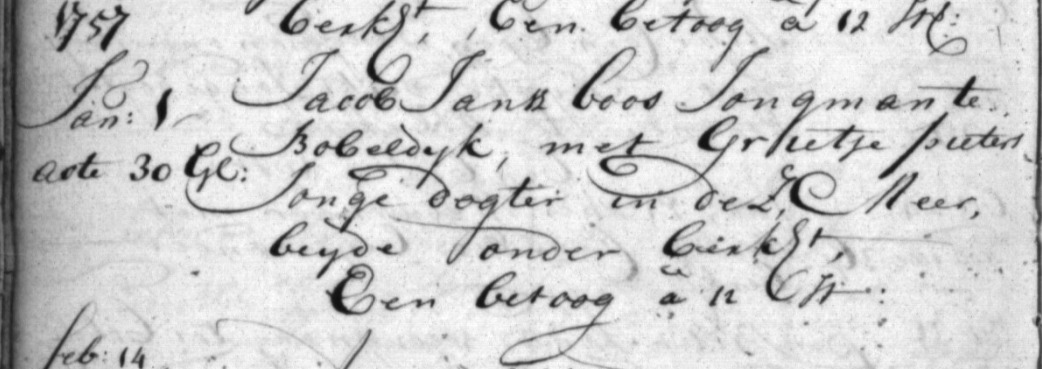 1757 berkht, Een betoog a 12 St:
Jan: 1 Jacob Jansz boos Jongman te
acte 30 Gl: Bobeldyk, met Grietje pieters
Jonge dogter in de Z, Meer,
beyde onder berkht,
Een betoog a 12 St:
feb: 14